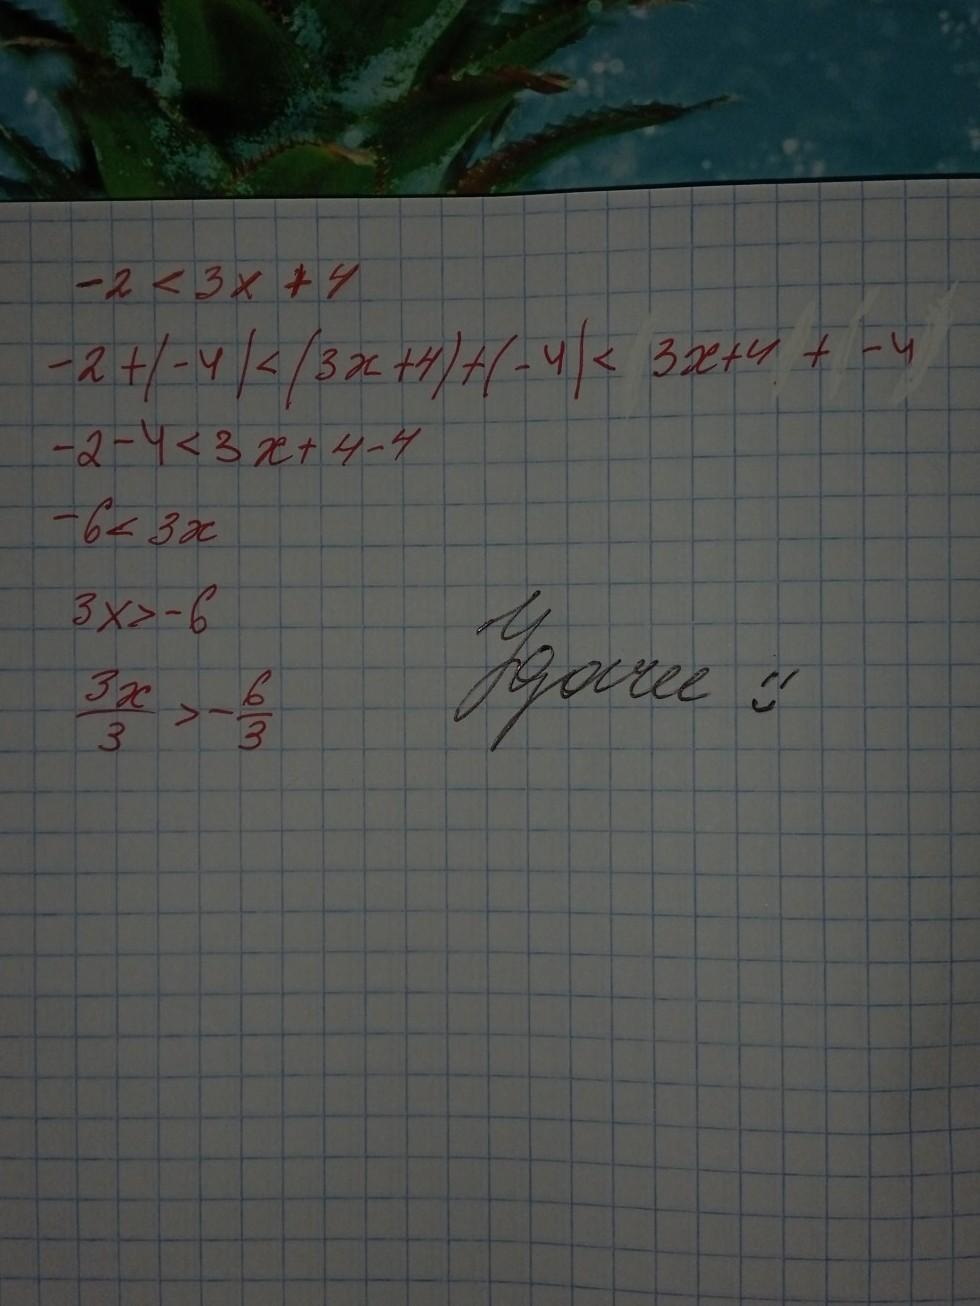 -2 < 3x + 4
-2+(-4)<(3x+4)+(-4)< 3x+4 + -4
-2-4<3x+4-4
-6< 3x
3x>-6
3x/3 > -6/3
Удачи :)